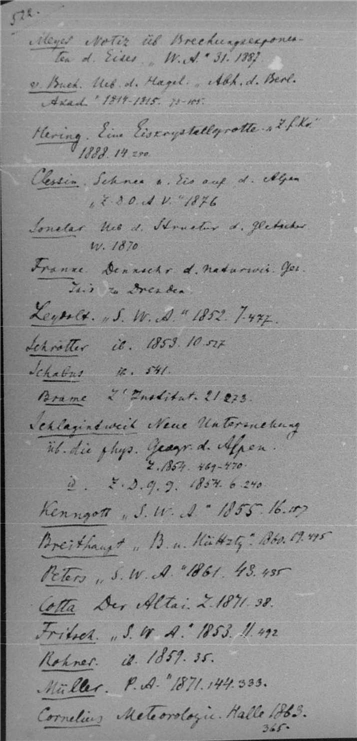 522.
Meyer Notiz üb Brechungsexponen-
ten d. Eises „W. A." 31. 1887
v. Buch. Ueb. d. Hagel. „Abh. d. Berl.
Akad." 1814-1815. 73-
Hering. Eine Eiskrystallgrotte. „Z. f. Kr."
1888. 14.
Clessin. Schnee u. Eis auf d. Alpen
„Z. D. O. A. V." 1876
Sonklar Ueb d. Structur d. Gletscher
W. 1870
Franze Denkschr d. naturwis. Ges.
Isis zu Dresden
Leydolt. „S. W. A." 1852. 7. 477.
Schrötter ib. 1853. 10. 527
Schabus ib. 541.
Brame L'Institut. 21. 273.
Schlagintweit Neue Untersuchung
üb. die phys. Geogr. d. Alpen.
L. 1854. 469-470.
id. Z. D. g. G. 1854. 6. 240
Kenngott „S. W. A" 1855. 16. 157
Breithaupt „B. u. Hüttztg" 1860. 19.
Peters „S. W. A." 1861. 43. 435
Cotta Der Altai. L. 1871. 38.
Fritsch. „S. W. A." 1853. 11. 492
Rohrer. ib. 1859. 35.
Müller. P. A." 1871. 144. 333.
Cornelius Meteorologie. Halle 1863.
365.